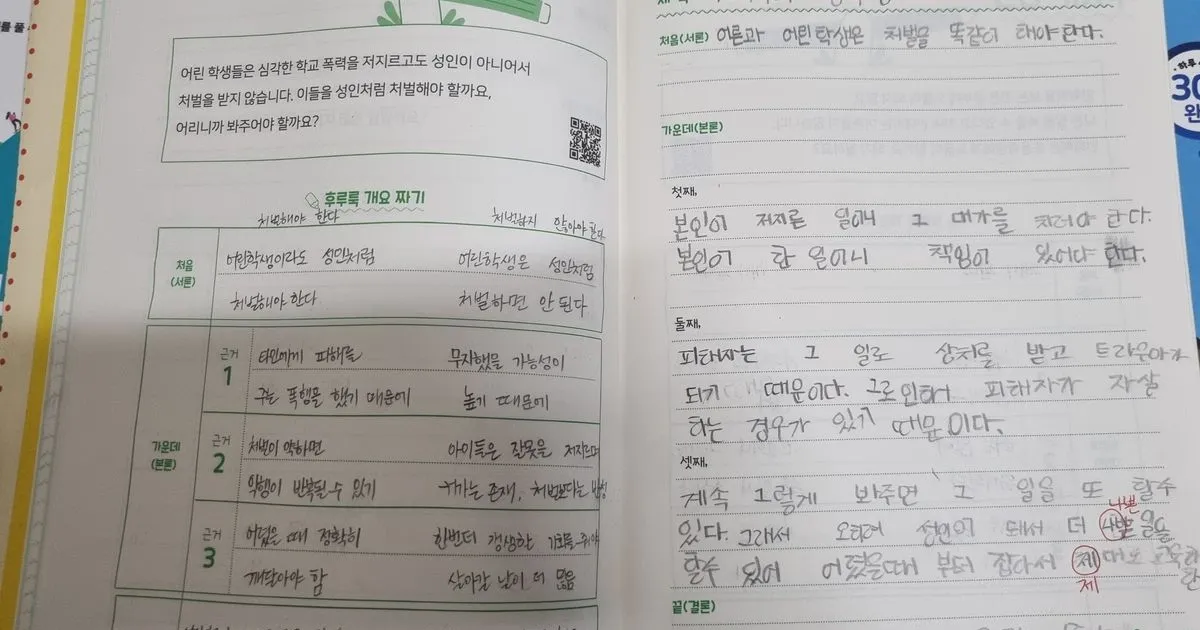 어린 학생들은 심각한 학교 폭력을 저지르고도 성인이 아니어서
처벌을 받지 않습니다. 이들을 성인처럼 처벌해야 할까요,
어리니까 봐주어야 할까요?
후루룩 개요 짜기
처벌해야 한다
처벌하지 않아야 한다
처음
(서론)
어린학생이라도 성인처럼
처벌해야 한다
어린학생은 성인처럼
처벌하면 안 된다
가운데
(본론)
근거
1
타인에게 피해를
주는 폭행을 했기 때문에
무지했을 가능성이
높기 때문에
근거
2
처벌이 약하면
악행이 반복될 수 있기
아이들은 잘못을 저지르며
존재, 처벌보다는
근거
3
어렸을 때 정확히
깨달아야 함
한번더 갱생할 기회를 줘야
살아갈 날이 더 많음
처음(서론) 어른과 어린학생은 처벌을 똑같이 해야한다.
가운데(본론)
첫째,
본인이 저지른 일이니 그 대가를 치러야 한다.
본인이 한 일이니 책임이 있어야 한다.
둘째,
피해자는 그 일로 상처를 받고 트라우마가
되기 때문이다. 그로인해서 피해자가 자살
하는 경우가 있기 때문이다.
셋째,
계속 그렇게 봐주면 그 일을 또 할수
나쁜
있다. 그래서 오히려 성인이 돼서 더 일을
할수 있어 어렸을때 부터 잡아서 제대로 교육해
제
끝(결론)
하루
30
완